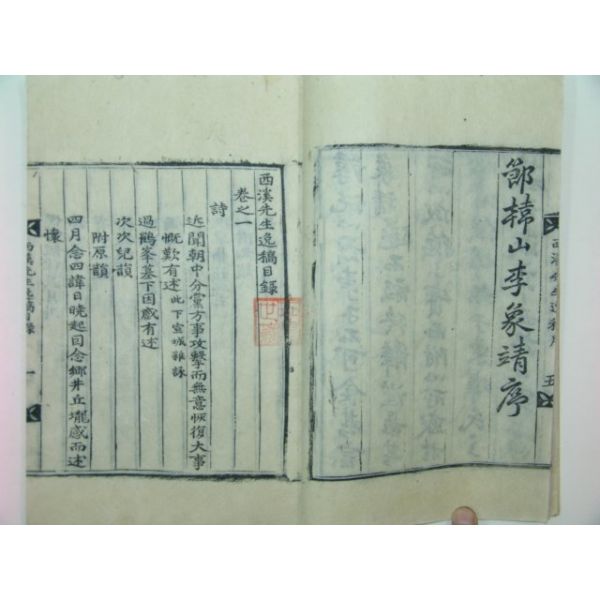 鄒韓山李象靖序
五
西溪先生逸稿目録
卷之一
詩
近聞朝中分黨方事攻擊而無意恢復大事
慨歎有述 此下宣城雜詠
過鶴峯墓下因感有述
次次兒韻
附原韻
四月念四諱日曉起因念鄉井丘壠感而述
懷
西溪先生逸稿目録
一